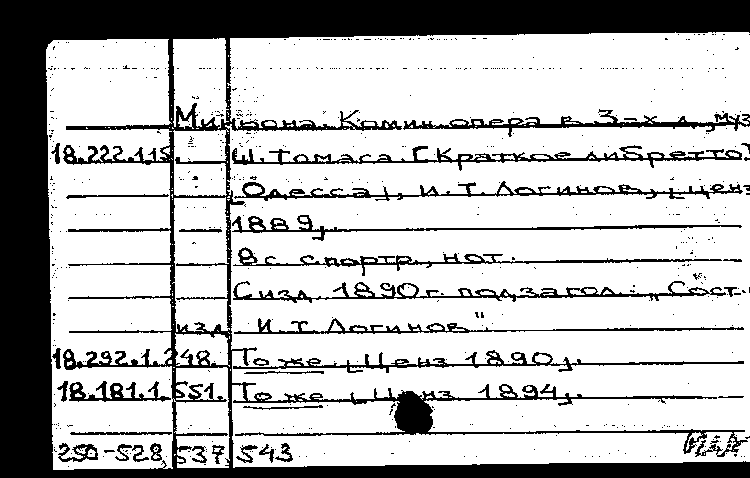 Миньона. Комич. опера в 3-х д., муз.
18.222.1.15. Ш. Томаса. [Краткое либретто]
[Одесса], И. Т. Логинов, [ценз.
1889].
8 с. с портр., нот.
С изд. 1890 г. подзагол.: „Сост. и
изд. И. Т. Логинов"
18.292.1.248. То же [Ценз. 1890].
18.181.1.551. То же [Ценз. 1894].
250-528, 537, 543